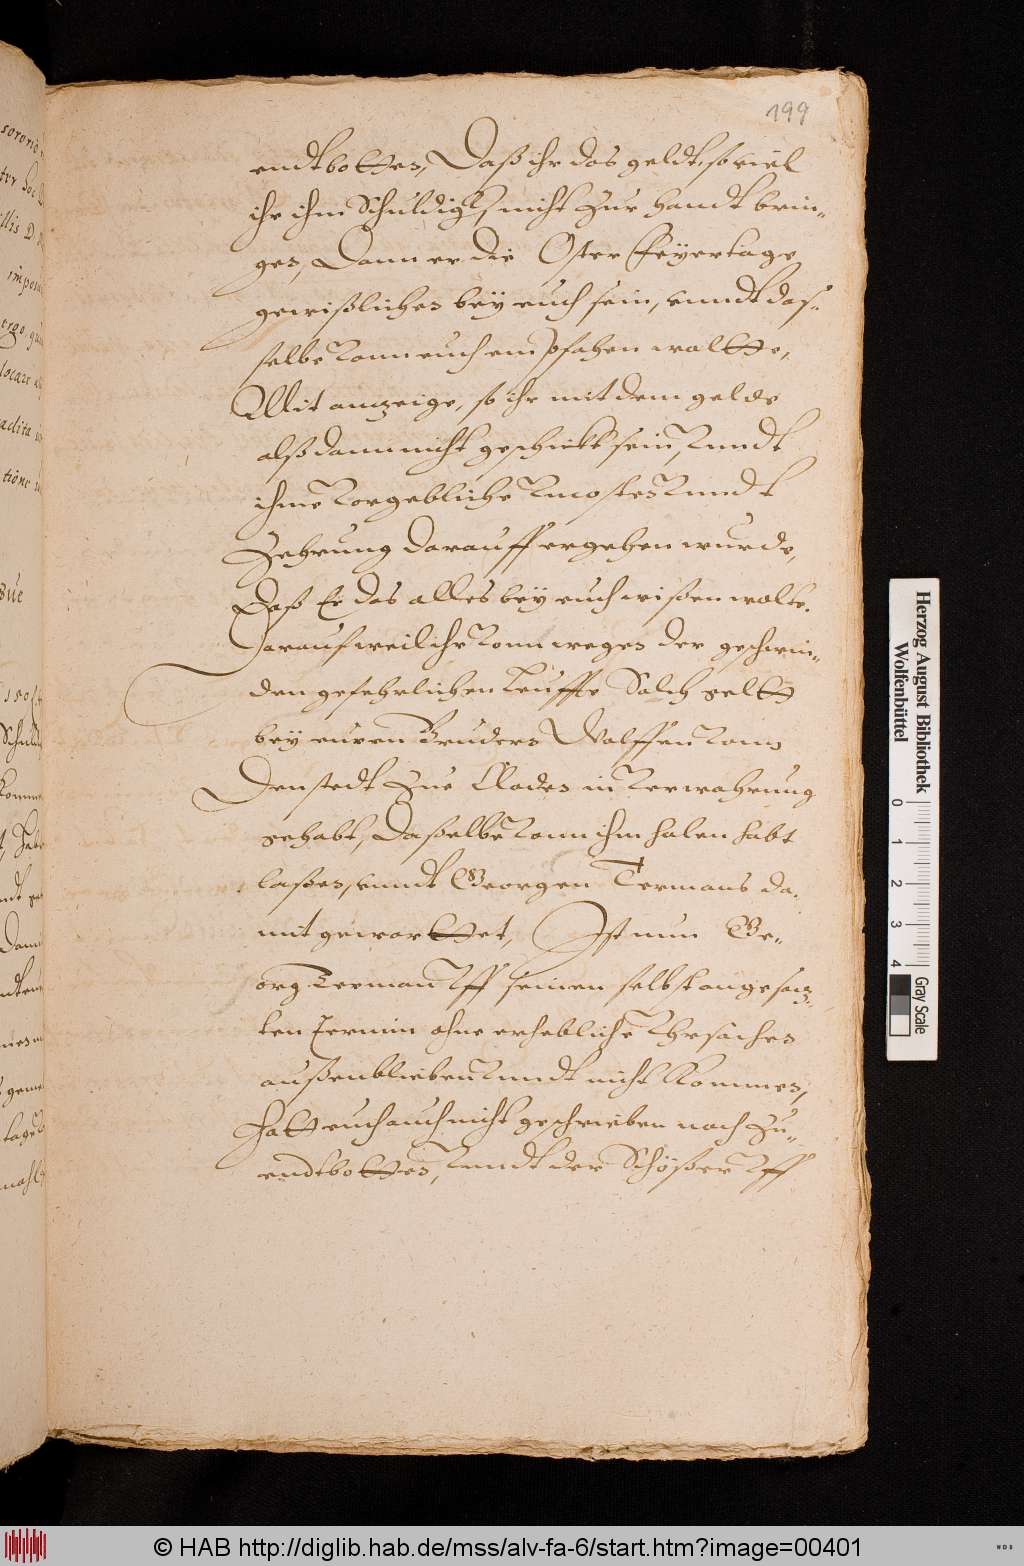 199
endtbotten, Daß ihr das geldt, so viel
ihr ihm Schuldig, nicht zur handt brin-
gen, Dann er die Oster Feyertage
gewißlichen bey euch sein, unndt das-
selbe vonn euch empfahen wolte,
Mit anzeige, so ihr mit dem gelde
alß dann nicht geschickt sein, vnndt
ihme vorgebliche vncosten vnndt
Zehrung darauff ergehen wurde,
Daß Er das alles bey euch wißen wolte.
Darauf weil ihr vonn wegen der geschwin-
den gefehrlichen leuffte Solch gelt
bey euren Bruders Wolffen vonn
Denstedt zue in verwahrung
gehabt, Daßelbe vonn ihm holen habt
laßen, unndt Georgen Termans da-
mit gewarttet, Ist nun Ge-
org Terman vff seinen selbst angesatz-
ten Termin ohne erhebliche Vhrsachen
außenblieben vnndt nicht Kommen,
Hatt euch auch nicht geschrieben noch zu-
endtbotten, vnndt der Schößer vff
Herzog August Bibliothek
Wolfenbüttel
0 1 2 3 4
Gray Scale
© HAB http://diglib.hab.de/mss/alv-fa-6/start.htm?image=00401